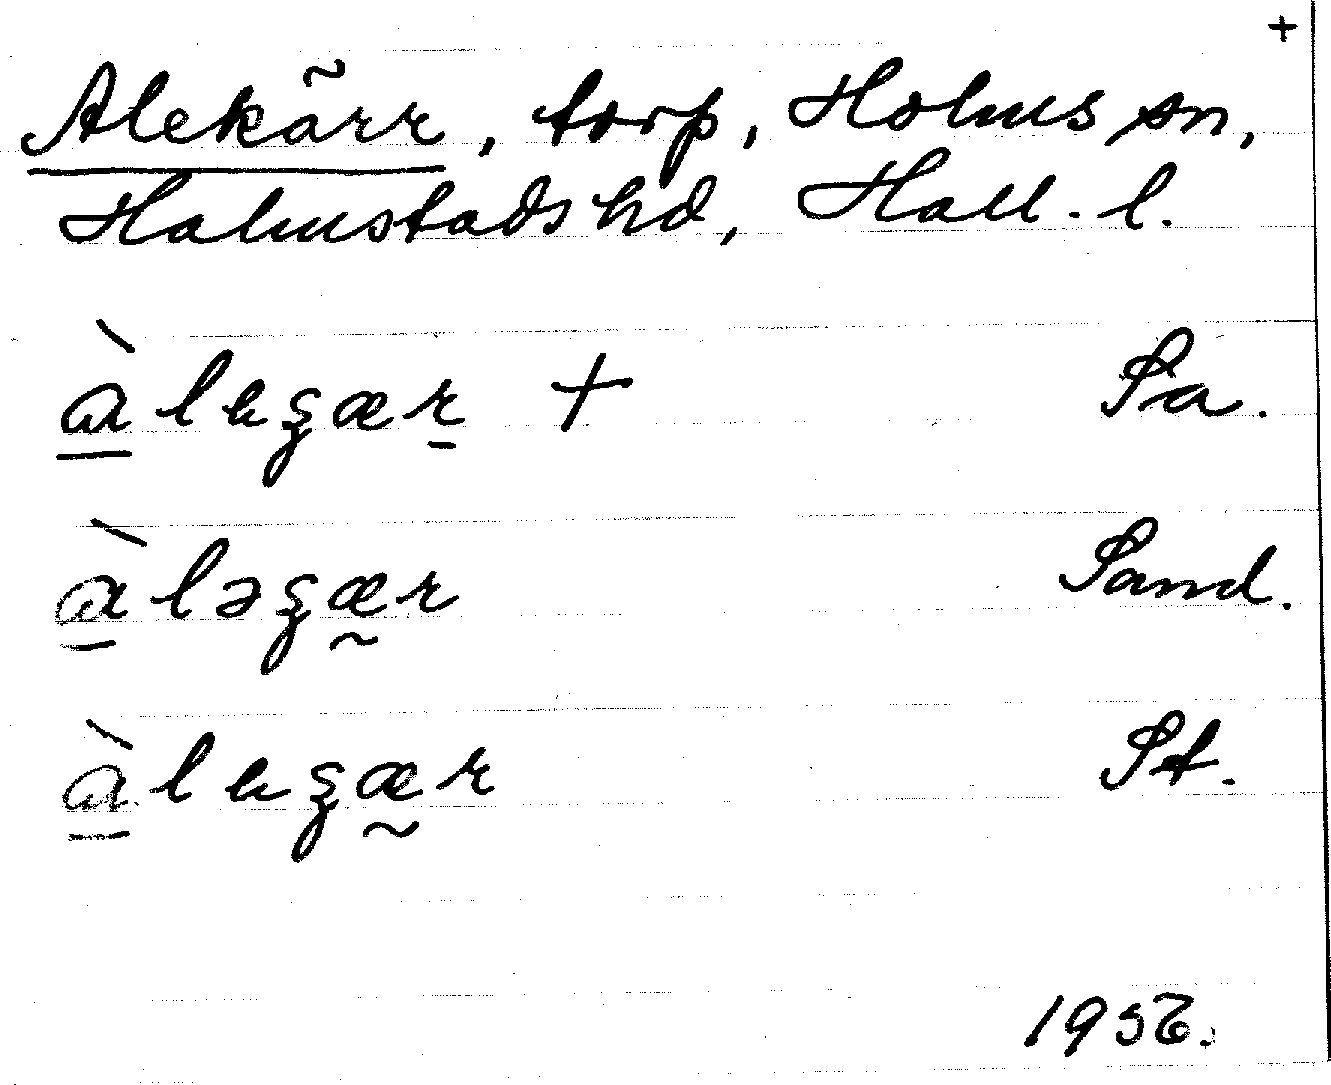 +
Alekärr, torp, Holms sn,
Halmstads hd, Hall. l.
àlegær + Sa.
àləgær Sand.
àlegær St.